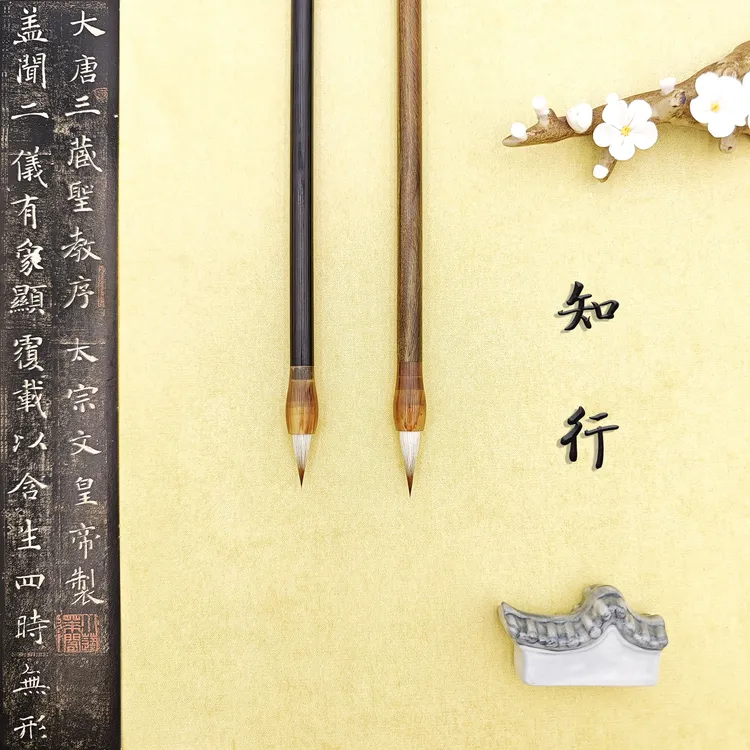 大唐三藏聖教序 太宗文皇帝製
盖聞二儀有象顯覆載以含生四時無形
知行